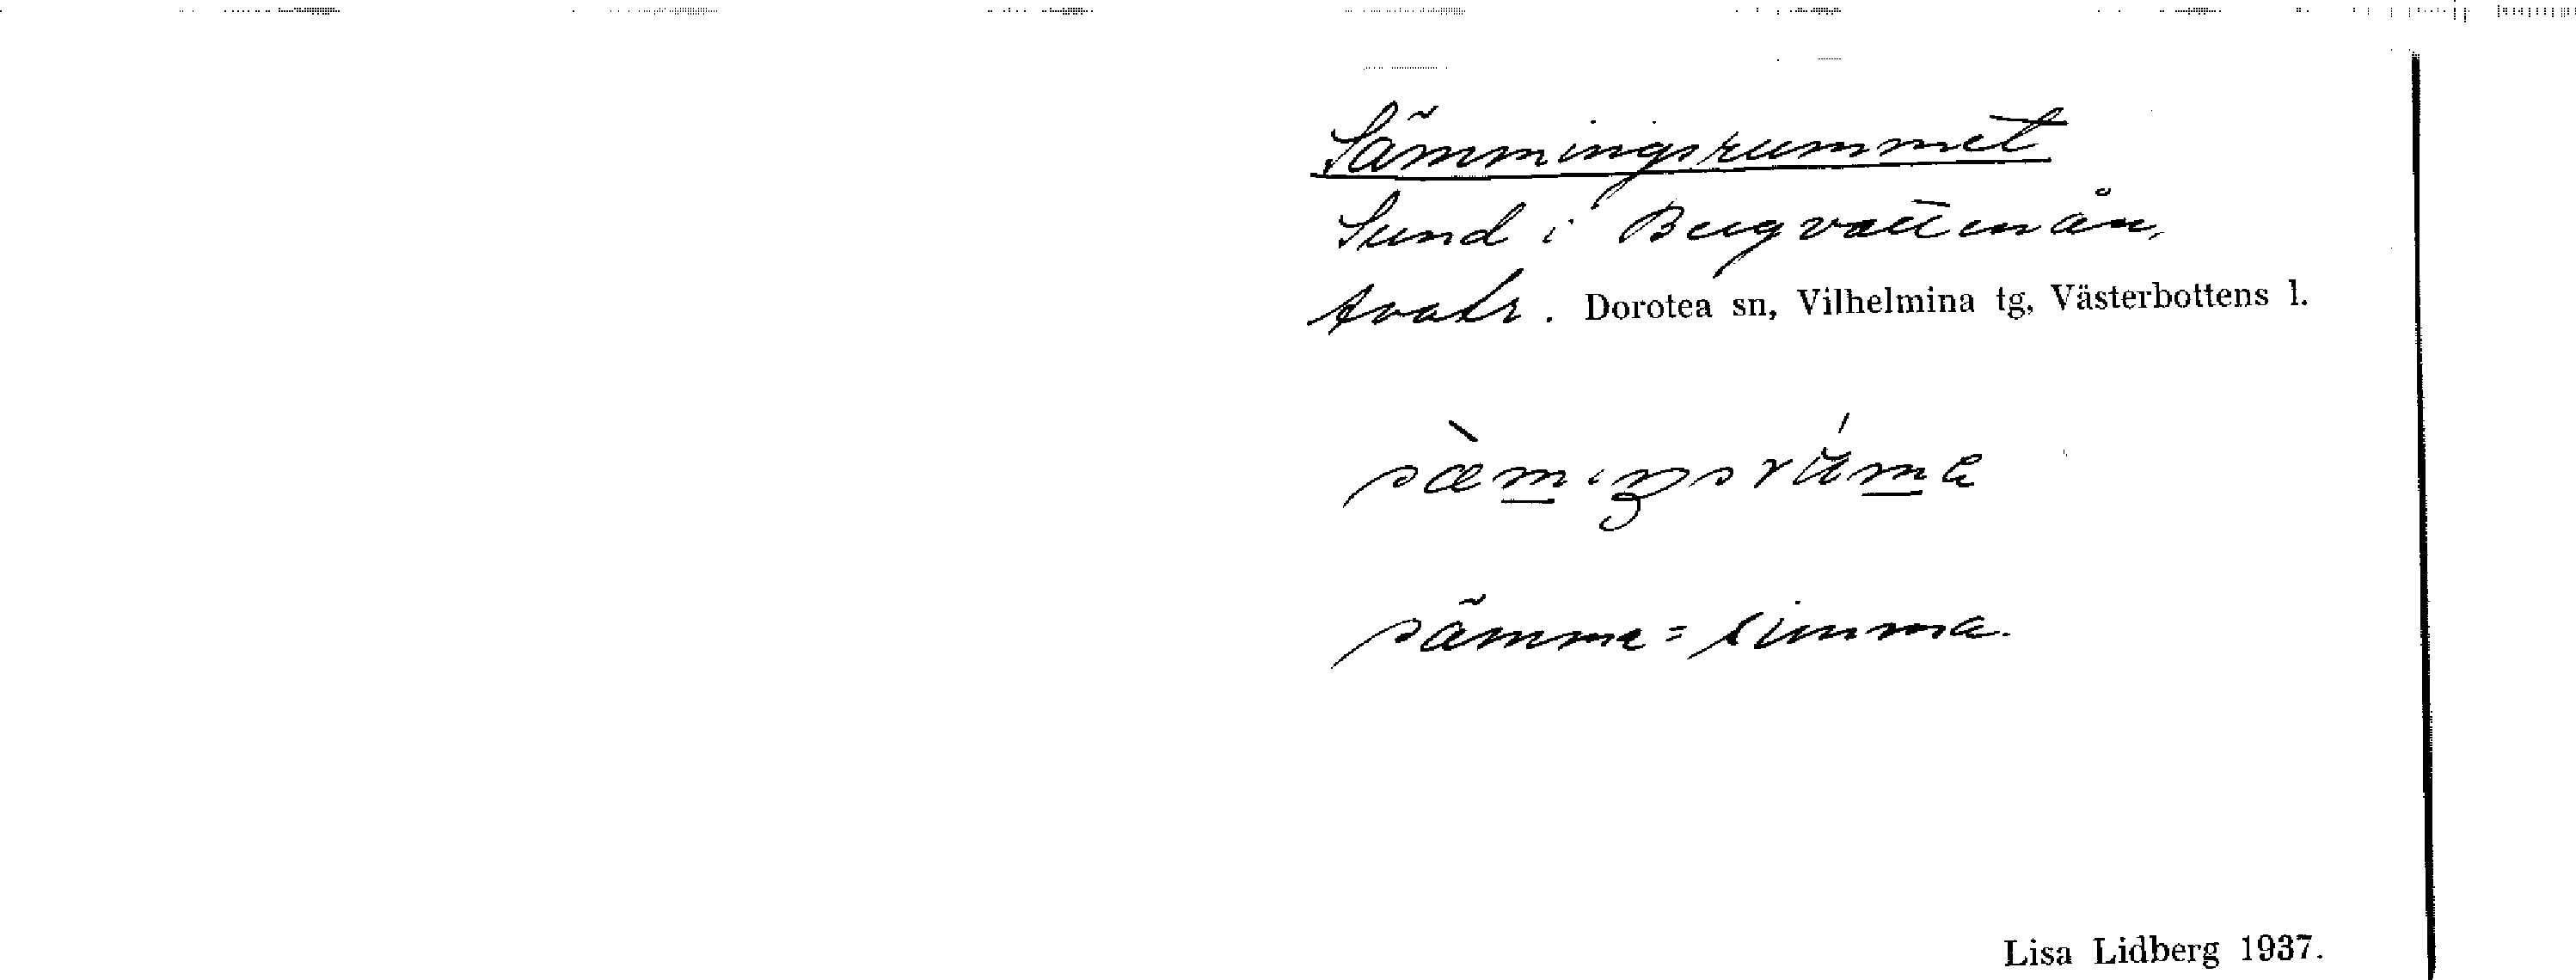 Sämmingsrummet
Sund i Bergvattenån,
Avatr. Dorotea sn, Vilhelmina tg, Västerbottens l.
sämme = simma.
Lisa Lidberg 1937.